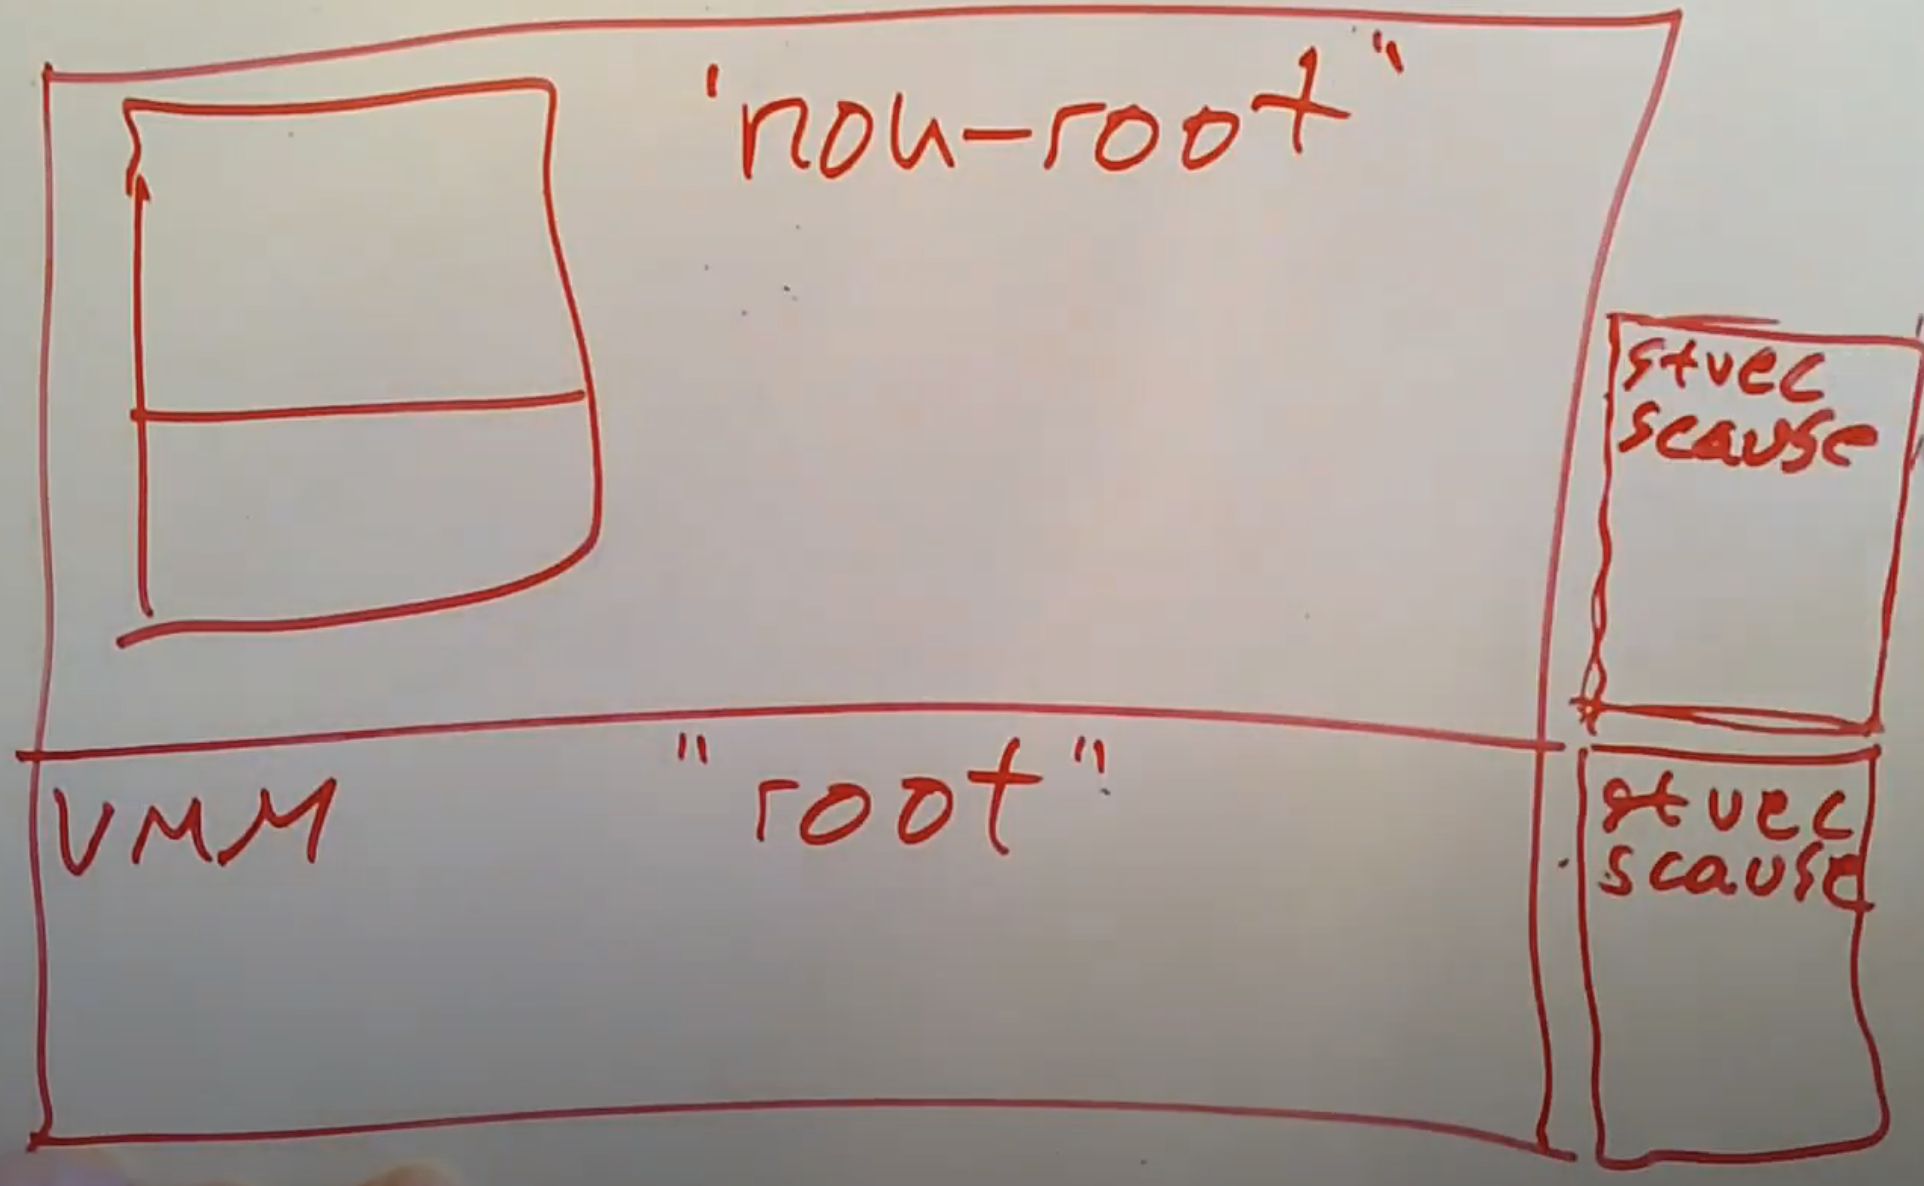 'non-root"
stvec
scause
VMM
"root"
stvec
scause